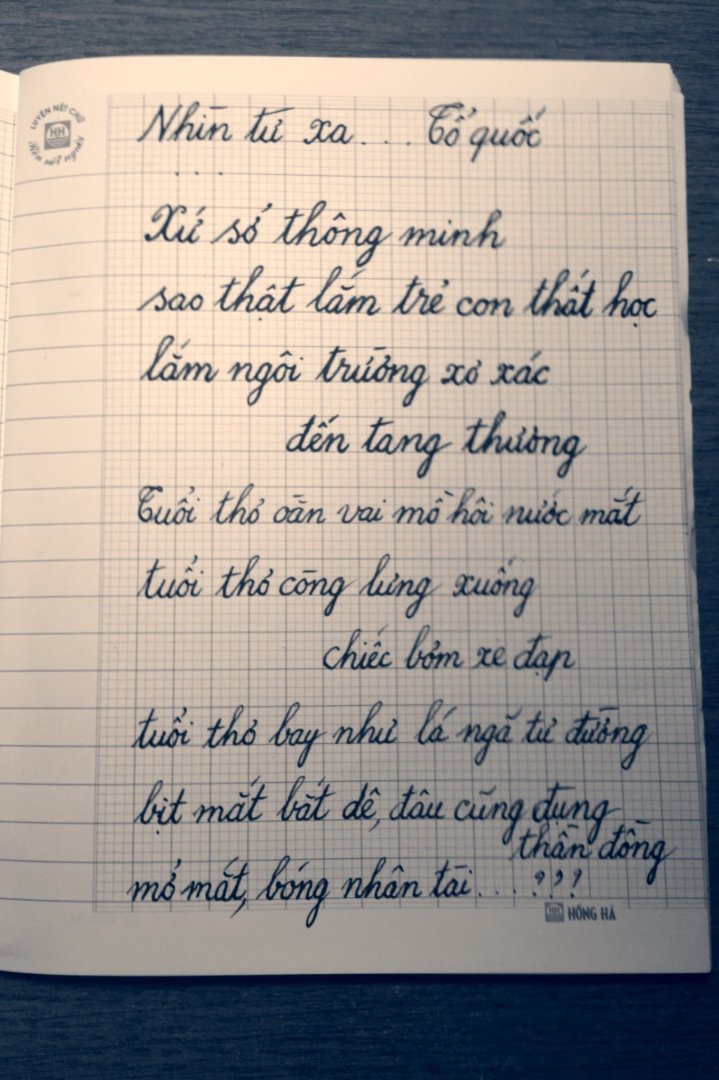 LUYỆN NÉT CHỮ
HH
Rèn nết người
Nhìn từ xa . . . Tổ quốc
. . .
Xứ sở thông minh
sao thật lắm trẻ con thất học
lắm ngôi trường xơ xác
đến tang thương
Tuổi thơ oằn vai mồ hôi nước mắt
tuổi thơ còng lưng xuống
chiếc bơm xe đạp
tuổi thơ bay như lá ngã tư đường
bịt mắt bắt dê, đâu cũng đụng
thần đồng
mở mắt, bóng nhân tài . . . ???
HH HỒNG HÀ